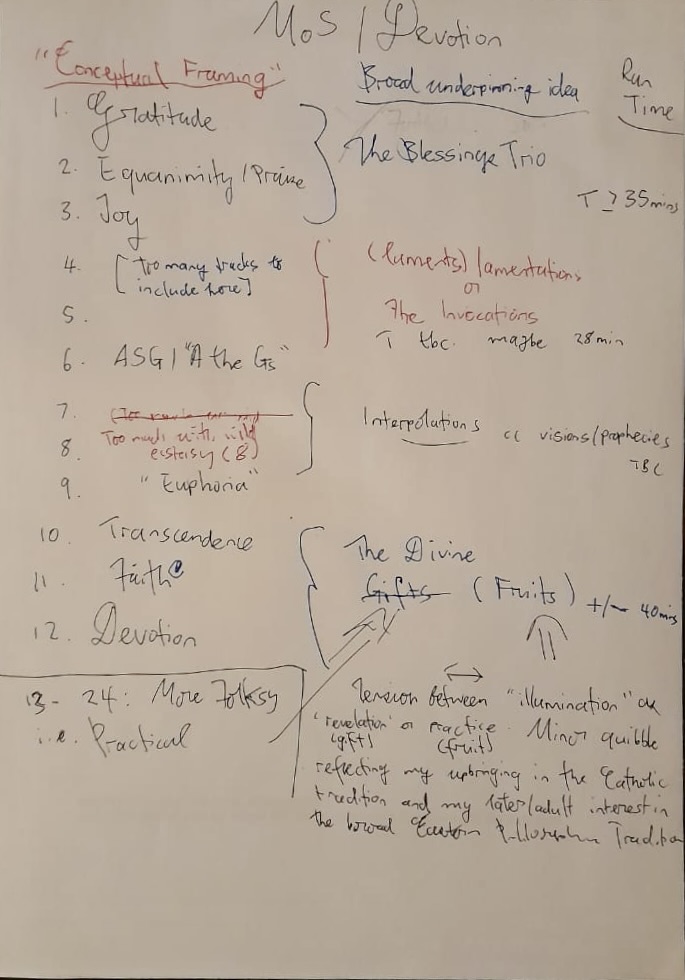 MoS / Devotion
"Conceptual Framing"
Broad underpinning idea
Run Time
1. Gratitude
2. Equanimity / Praise
3. Joy
The Blessings Trio
T ≥ 35 mins
4. [Too many tracks to
include here]
5.
6. ASG / "A the Gs"
(laments) lamentations
or
The Invocations
T tbc. maybe 28 min
7.
8. Too much with
ecstasy (8)
9. "Euphoria"
Interpolations cc visions/prophecies
TBC
10. Transcendence
11. Faith
12. Devotion
The Divine
Gifts (Fruits) +/- 40 mins
13 - 24: More Folksy
i.e. Practical
Tension between "illumination" or
'revelation' or practice. Minor quibble
(gift) (fruit)
reflecting my upbringing in the Catholic
tradition and my later/adult interest in
the broad Eastern Tradition